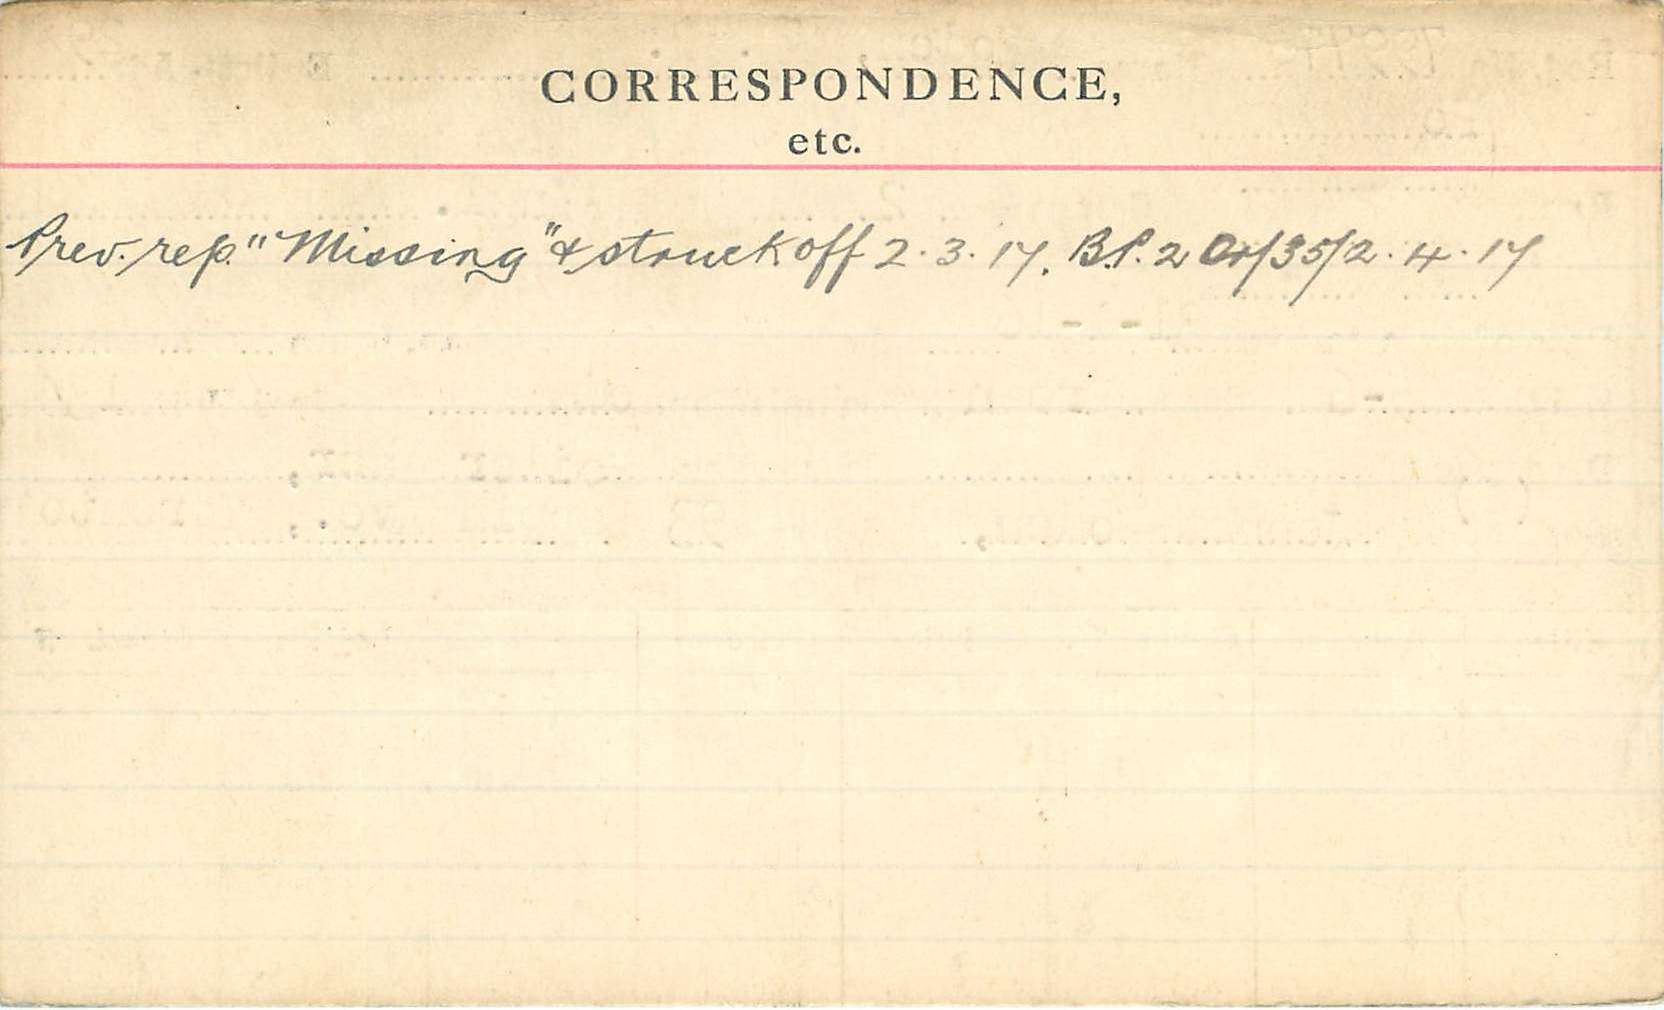 CORRESPONDENCE,
etc.
Prev. rep. "Missing" & struck off 2.3.17. B.P. 2 Or/35/2.4.17